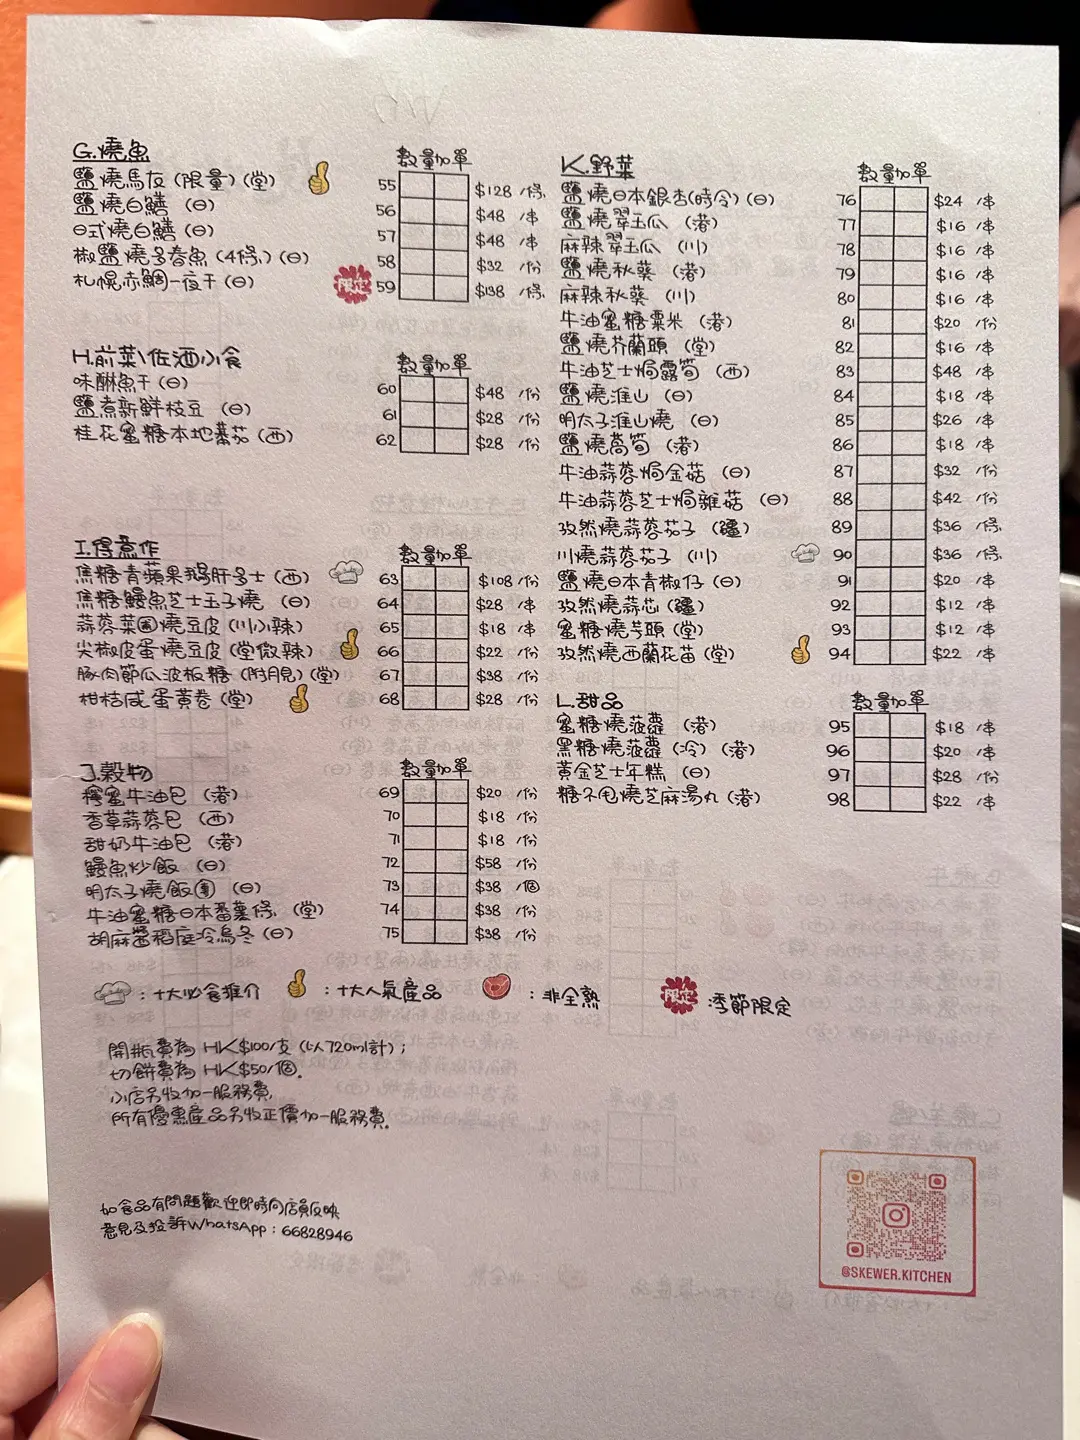 G.燒魚
數量 加單
鹽燒馬友(限量)(堂) 55 $128 /條
鹽燒白鱔 (日) 56 $48 /串
日式燒白鱔 (日) 57 $48 /串
椒鹽燒多春魚(4條)(日) 58 $32 /份
札幌赤鯛一夜干(日) 限定 59 $138 /條
H.前菜\佐酒小食
數量 加單
味醂魚干(日) 60 $48 /份
鹽煮新鮮枝豆 (日) 61 $28 /份
桂花蜜糖本地蕃茄(西) 62 $28 /份
I.得意作
數量 加單
焦糖青蘋果鵝肝多士(西) 63 $108/份
焦糖鰻魚芝士玉子燒 (日) 64 $28 /串
蒜蓉菜圃燒豆皮(川小辣) 65 $18 /串
尖椒皮蛋燒豆皮(堂微辣) 66 $22 /份
豚肉節瓜波板糖(附月見)(堂) 67 $38 /份
柑桔咸蛋黃卷(堂) 68 $28 /份
J.穀物
數量 加單
蜜牛油包 (港) 69 $20 /份
香草蒜蓉包 (西) 70 $18 /份
甜奶牛油包 (港) 71 $18 /份
鰻魚炒飯 (日) 72 $58 /份
明太子燒飯團 (日) 73 $38 /個
牛油蜜糖日本番薯條 (堂) 74 $38 /份
胡麻醬稻庭冷烏冬(日) 75 $38 /份
K.野菜
數量 加單
鹽燒日本銀杏(時令)(日) 76 $24 /串
鹽燒翠玉瓜 (港) 77 $16 /串
麻辣翠玉瓜 (川) 78 $16 /串
鹽燒秋葵 (港) 79 $16 /串
麻辣秋葵 (川) 80 $16 /串
牛油蜜糖粟米 (港) 81 $20 /份
鹽燒芥蘭頭 (堂) 82 $16 /串
牛油芝士焗露筍 (西) 83 $48 /串
鹽燒淮山 (日) 84 $18 /串
明太子淮山燒 (日) 85 $26 /串
鹽燒萵筍 (港) 86 $18 /串
牛油蒜蓉焗金菇 (日) 87 $32 /份
牛油蒜蓉芝士焗雜菇 (日) 88 $42 /份
孜然燒蒜蓉茄子 (疆) 89 $36 /條
川燒蒜蓉茄子 (川) 90 $36 /條
鹽燒日本青椒仔(日) 91 $20 /串
孜然燒蒜芯(疆) 92 $12 /串
蜜糖燒芋頭(堂) 93 $12 /串
孜然燒西蘭花苗(堂) 94 $22 /串
L.甜品
數量 加單
蜜糖燒菠蘿 (港) 95 $18 /串
黑糖燒菠蘿(冷) (港) 96 $20 /串
黃金芝士年糕 (日) 97 $28 /份
糖不甩燒芝麻湯丸(港) 98 $22 /串
:十大必食推介 :十大人氣產品 :非全熟 限定:季節限定
開瓶費為 HK$100/支(以720ml計);
切餅費為 HK$50/個.
小店另收加一服務費,
所有優惠產品另收正價加一服務費.
如食品有問題歡迎即時向店員反映
意見及投訴WhatsApp:66828946
@SKEWER.KITCHEN